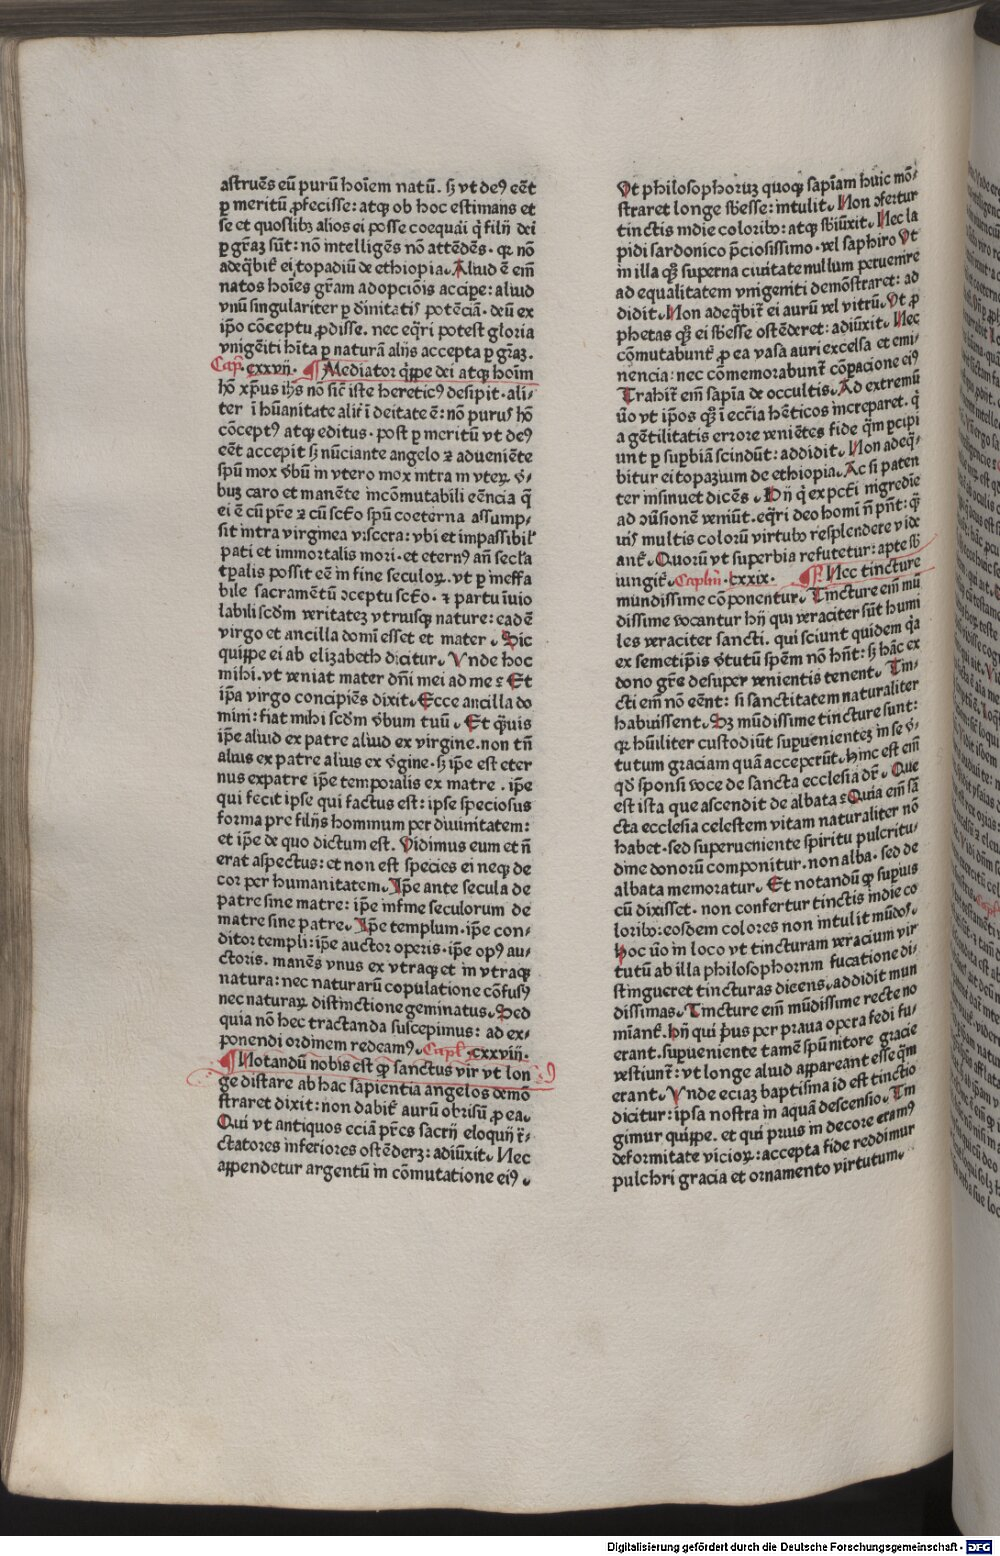 astruēs eū purū hoīem natū. sꝫ vt deꝰ eēt
ꝑ meritū ꝓfecisse: atqꝫ ob hoc estimans et
se et quoslibꝫ alios ei posse coequāi q̄ filij dei
ꝑ gr̄aꝫ sūt: nō intelligēs nō attēdēs. qꝛ nō
adeq̄bit̄ ei topadiū de ethiopia. Aliud ē em̄
natos hoīes gr̄am adopciōis accipe: aliud
vnū singulariter ꝑ diuinitatis potēciā. deū ex
ip̄o cōceptu ꝓdisse. nec eq̄ri potest gloria
vnigēiti hīta ꝑ naturā alijs accepta ꝑ gr̄aꝫ.
Cap. cxxvij. ¶ Mediator q̄ppe dei atqꝫ hoīm
hō xp̄us ihs̄ nō sic̄ iste hereticꝰ desipit. ali-
ter ī hūanitate alit̄ ī deitate ē: nō purus hō
cōceptꝰ atqꝫ editus. post ꝑ meritū vt deꝰ
eēt accepit sꝫ nūciante angelo ⁊ adueniēte
spū mox v̄bū in vtero mox intra in vteꝝ v̄-
buꝫ caro et manēte incōmutabili eēncia q̄
ei ē cū pr̄e ⁊ cū scō spū coeterna assump-
sit intra virginea viscera: vbi et impassibil̕
pati et immortalis mori. et eternꝰ añ secl̄a
tꝑalis possit eē in fine seculoꝝ. vt ꝑ ineffa
bile sacramētū ɔceptu scō. ⁊ partu īuio
labili scd̄m veritateꝫ vtriusqꝫ nature: eadē
virgo et ancilla domī esset et mater. Sic
quippe ei ab elizabeth dicitur. Vnde hoc
mihi. vt veniat mater dn̄i mei ad me: Et
ip̄a virgo concipiēs dixit. Ecce ancilla do
mini: fiat mihi scd̄m v̄bum tuū. Et q̄uis
ip̄e aliud ex patre aliud ex virgine. non tn̄
alius ex patre alius ex v̄gine. sꝫ ip̄e est eter
nus expatre ip̄e temporalis ex matre. ip̄e
qui fecit ipse qui factus est: ipse speciosus
forma pre filijs hominum per diuinitatem:
et ip̄e de quo dictum est. Vidimus eum et n̄
erat aspectus: et non est species ei neqꝫ de
cor per humanitatem. Ip̄e ante secula de
patre sine matre: ip̄e infine seculorum de
matre sine patre. Ip̄e templum. ip̄e con-
ditor templi: ip̄e auctor operis. ip̄e opꝰ au-
ctoris. manēs vnus ex vtraqꝫ et in vtraqꝫ
natura: nec naturarū copulatione cōfusꝰ
nec naturaꝝ distinctione geminatus. Sed
quia nō hec tractanda suscepimus: ad ex-
ponendi ordinem redeamꝰ. Capl̄. cxxviij.
¶ Notandū nobis est ꝙ sanctus vir vt lon
ge distare ab hac sapientia angelos demō
straret dixit: non dabit̄ aurū obrisū ꝓ ea.
Qui vt antiquos ecciā pr̄es sacrij eloquij t̄-
ctatores inferiores ostēderꝫ: adiūxit. Nec
appendetur argentū in cōmutatione eiꝰ.
Vt philosophoruꝫ quoqꝫ sapīam huic mō-
straret longe sb̄esse: intulit. Non ɔfertur
tinctis indie coloribꝰ: atqꝫ sbiūxit. Nec la
pidi sardonico p̄ciosissimo. vel saphiro Vt
in illa qꝫ superna ciuitate nullum peruenire
ad equalitatem vnigeniti demōstraret: ad
didit. Non adeq̄bit̄ ei aurū vel vitrū. Vt ꝓ
phetas qꝫ ei sb̄esse ostēderet: adiūxit. Nec
cōmutabunt̄ ꝓ ea vasa auri excelsa et emi-
nencia: nec cōmemorabunt̄ cōpacione eiꝰ
Trahit̄ em̄ sapīa de occultis. Ad extremū
v̄o vt ip̄os qꝫ ī ecc̄ia h̄eticos increparet. q̄
a gētilitatis errore veniētes fide q̄m ꝑcipi
unt ꝑ supbiā scindūt: addidit. Non adeq̄-
bitur ei topazium de ethiopia. Ac si paten
ter insinuet dicēs. Hij q̄ ex pctī nigredie
ad ɔūsionē veniūt. eq̄ri deo homī n̄ pn̄t: q̄ꝫ
uis multis colorū virtubꝰ resplendere vide
ant̄. Quorū vt superbia refutetur: apte sb̄
iungit̄. Caplm̄. cxxix. ¶ Nec tincture
mundissime cōponentur. Tincture em̄ mū
dissime vocantur hij qui veraciter sūt humi
les veraciter sancti. qui sciunt quidem q̄a
ex semetip̄is v̄tutū spēm nō hn̄t: sꝫ hāc ex
dono gr̄e desuper venientis tenent. Tin-
cti em̄ nō eēnt: si sanctitatem naturaliter
habuissent. Sꝫ mūdissime tincture sunt:
qꝛ hūiliter custodiūt supuenienteꝫ in se v̄-
tutum graciam quā acceperūt. Hinc est em̄
qd̄ sponsi voce de sancta ecclesia dr̄. Que
est ista que ascendit de albata: Quia em̄ sā
cta ecclesia celestem vitam naturaliter nō
habet. sed superueniente spiritu pulcritu-
dine donorū componitur. non alba. sed de
albata memoratur. Et notandū ꝙ supius
cū dixisset. non confertur tinctis indie co
loribꝰ: eosdem colores non intulit mūdos.
Hoc v̄o in loco vt tincturam veracium vir
tutū ab illa philosophornm fucatione di-
stingueret tincturas dicens. addidit mun
dissimas. Tincture em̄ mūdissime recte no
mīant̄. Hij qui p̄us per praua opera fedi fu-
erant. supueniente tamē spū nitore gracie
vestiunt̄: vt longe aliud appareant esse q̄m
erant. Vnde eciaꝫ baptisma id est tinctio
dicitur: ipsa nostra in aquā descensio. Tin
gimur quippe. et qui prius in decore eramꝰ
deformitate vicioꝝ: accepta fide reddimur
pulchri gracia et ornamento virtutum.
Digitalisierung gefördert durch die Deutsche Forschungsgemeinschaft - DFG